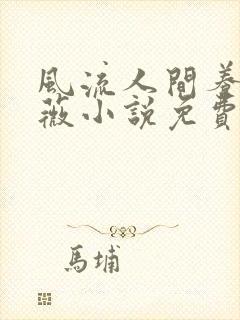 風流人間養
薇小說免費
馬埔